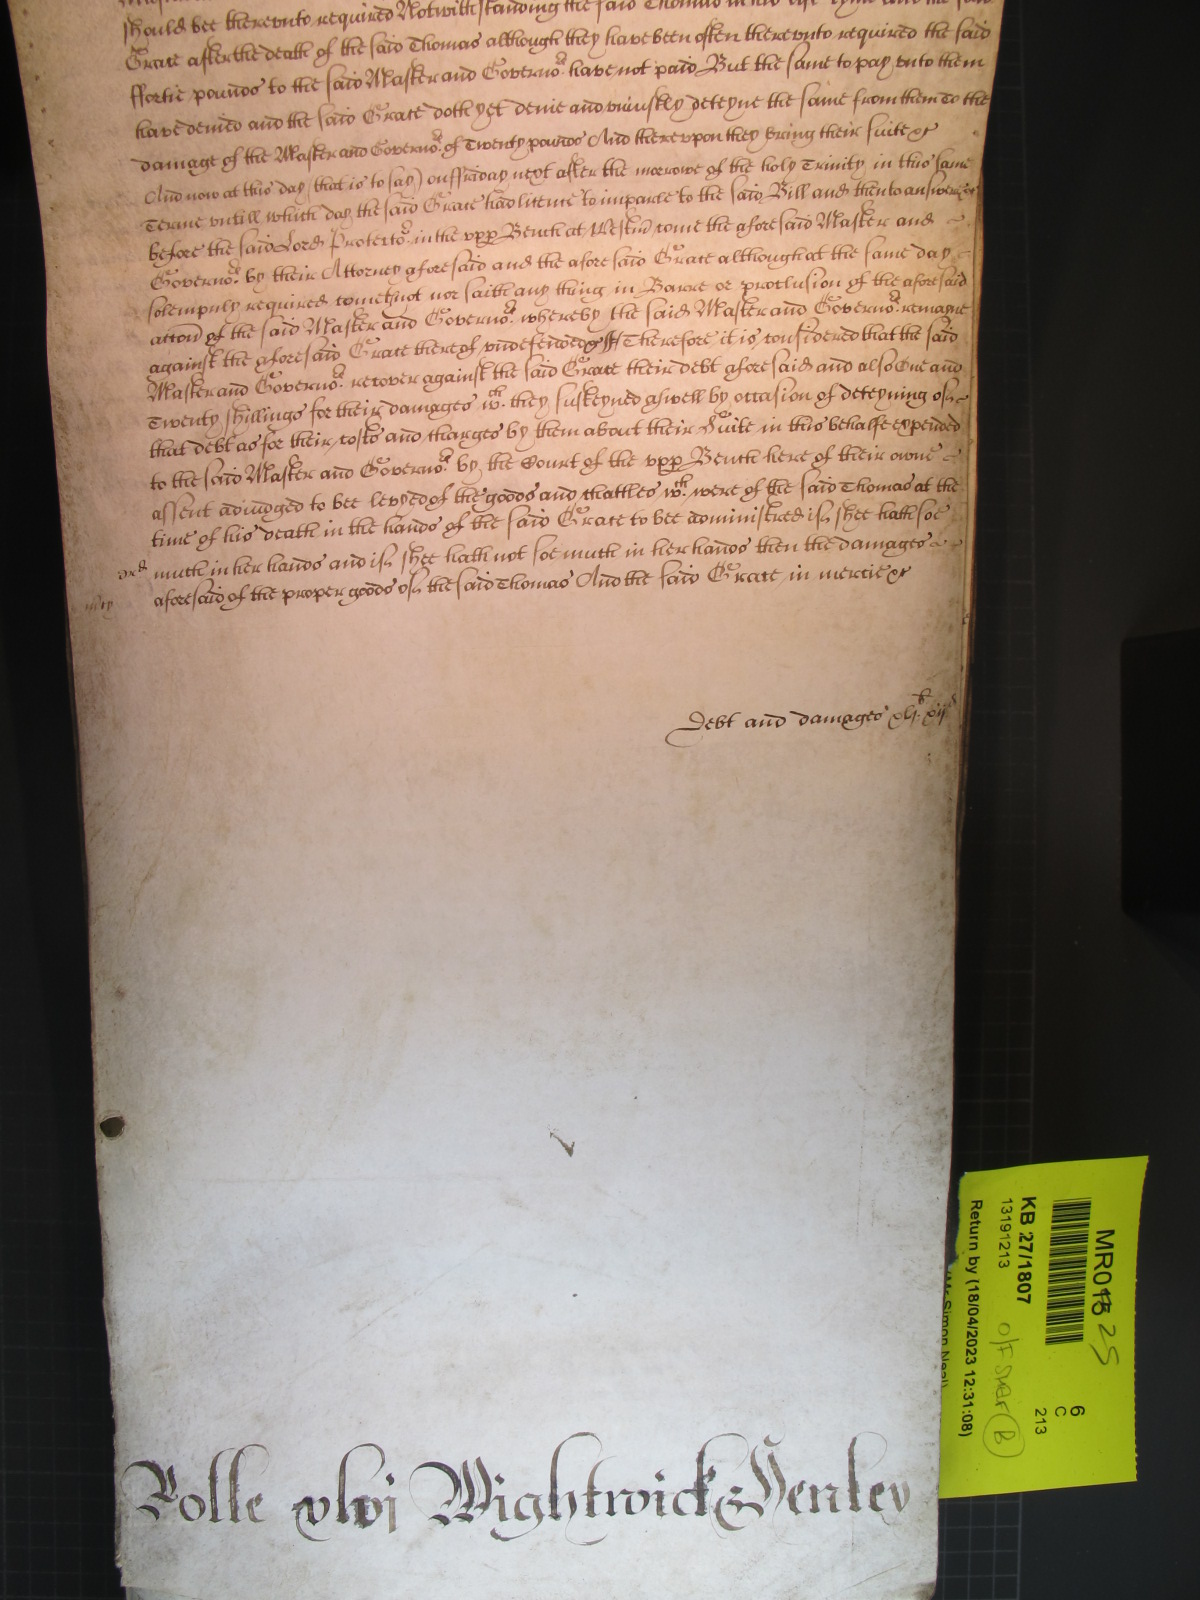 should bee therevnto required Notwithstanding the said Thomas in his life tyme and the said
Grace after the death of the said Thomas although they have been often therevnto required the said
ffortie pounds to the said Master and Governors have not paid But the same to pay vnto them
have denied and the said Grace doth yet denie and vniustly deteyne the same from them To the
damage of the Master and Governors of Twenty pounds And therevpon they bring their suite &c
And now at this day (that is to say) on ffriday next after the morrowe of the holy Trinity in this same
Terme vntill which day the said Grace had licence to imparle to the said Bill and then to answere &c
before the said Lord Protector in the vpp Bench at Westm come the aforesaid Master and
Governors by their Attorney aforesaid and the aforesaid Grace although at the same day
solempnly required cometh not nor saith any thing in Barre or preclusion of the aforesaid
accon of the said Master and Governors whereby the said Master and Governors remayne
against the aforesaid Grace thereof vndefended &c Therefore it is considered that the said
Master and Governors recover against the said Grace their debt aforesaid and also One and
Twenty shillings for their damages wch they susteyned aswell by occasion of deteyning of
that debt as for their costs and charges by them about their Suite in this behalfe expended
to the said Master and Governors by the Court of the vpp Bench here of their owne
assent adiudged to bee levyed of the goods and chattles wch were of the said Thomas at the
time of his death in the hands of the said Grace to bee administred if shee hath soe
much in her hands and if shee hath not soe much in her hands then the damages
aforesaid of the proper goods of the said Thomas And the said Grace in mercie &c
Debt and damages xlj
Rolle xlvj Wightwick & Henley
MR018 25
KB 27/1807
13191213
Return by (18/04/2023 12:31:08)
(Mr Simon Neal)
6
C
213
B